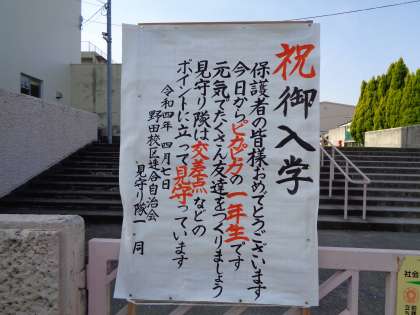 祝御入学
保護者の皆様おめでとうございます
今日からピカピカの一年生です
元気でたくさん友達をつくりましょう
見守り隊は交差点などの
ポイントに立って見守っています
令和四年四月七日
野田校区連合自治会
見守り隊一同
社会